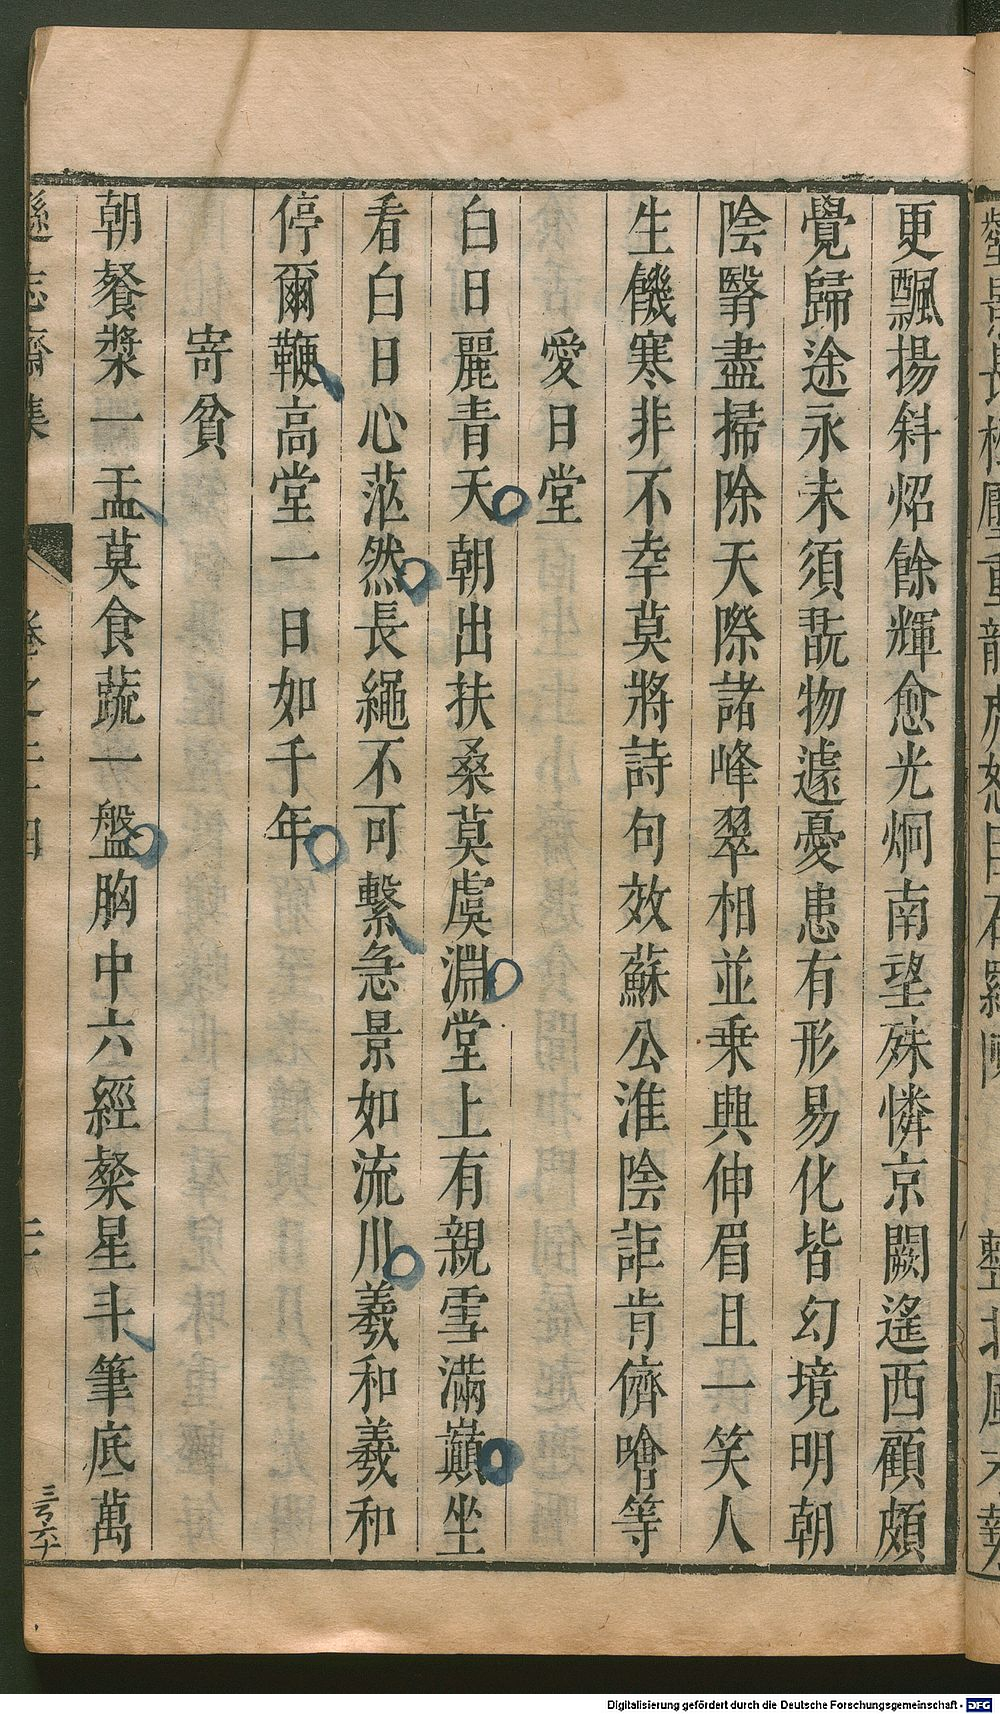 更飄揚斜炤餘輝愈光炯南望殊憐京闕遙西顧頗
覺歸途永未須翫物遽憂患有形易化皆幻境明朝
陰翳盡掃除天際諸峰翠相並乗興伸眉且一笑人
生饑寒非不幸莫將詩句效蘇公淮陰詎肯儕噲等
愛日堂
白日麗青天朝出扶桑莫虞淵堂上有親雪滿巔坐
看白日心茫然長繩不可繫急景如流川羲和羲和
停爾鞭高堂一日如千年
寄貧
朝餐漿一盂莫食蔬一盤胸中六經粲星斗筆底萬
遜志齋集
卷之二十四
三百六十
Digitalisierung gefördert durch die Deutsche Forschungsgemeinschaft - DFG